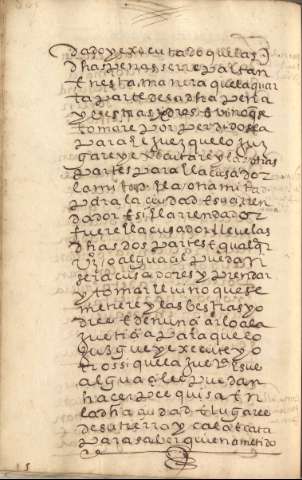 dado y executado que las
dhas penas se rrepartan
en esta manera que la quar
ta parte de la dha pena
y bestias y odres e vino q se
tomare por perdido sea
para el juez que lo juz
gare y executare y las otras
partes para el acusador
la mitad e la otra mitad
pa la ciudad e su arren
dador e si el arrendador
fuere el acusador lleve las
dhas dos partes e qualqr
vzo o alguacil puedan
ser acusadores y prendar
y tomar el vino que se
metiere y las bestias y o
dres e denunciarlo a la
justicia para que lo
juzgue y execute y o
trosi que la justicia e sus
alguaciles puedan
hacer pesquisa en
la dha ciudad e lugares
de su tierra y cala e cata
para saber quien a metido